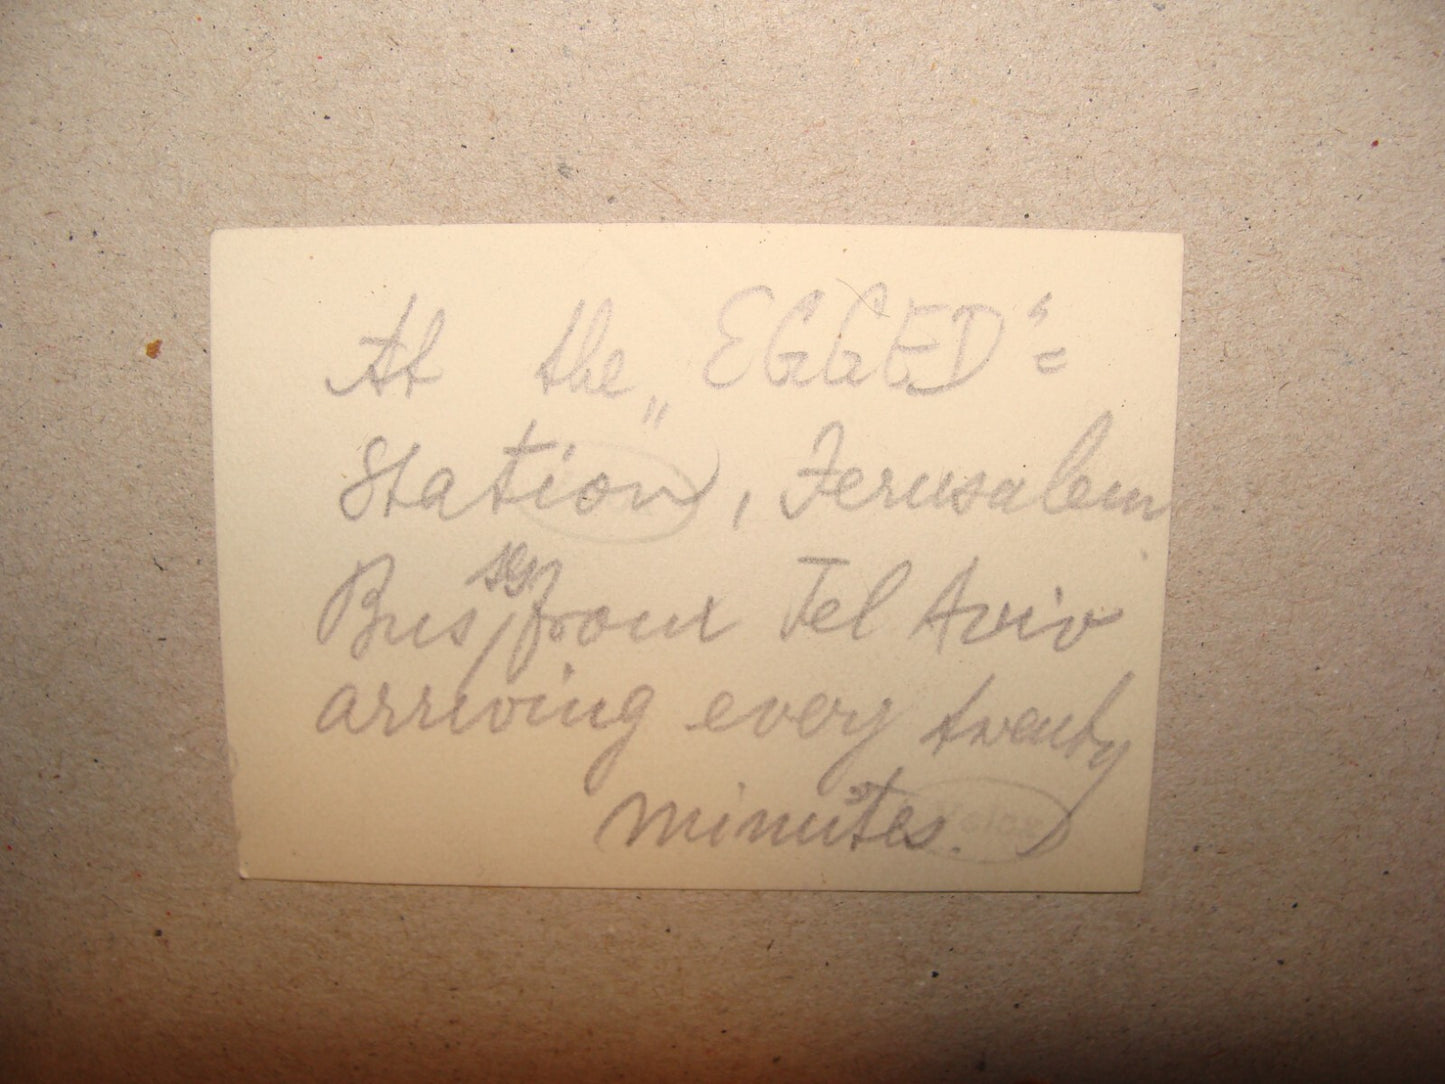 At the „EGGED"=
Station, Jerusalem
Busses from Tel Aviv
arriving every twenty
minutes.
Velox